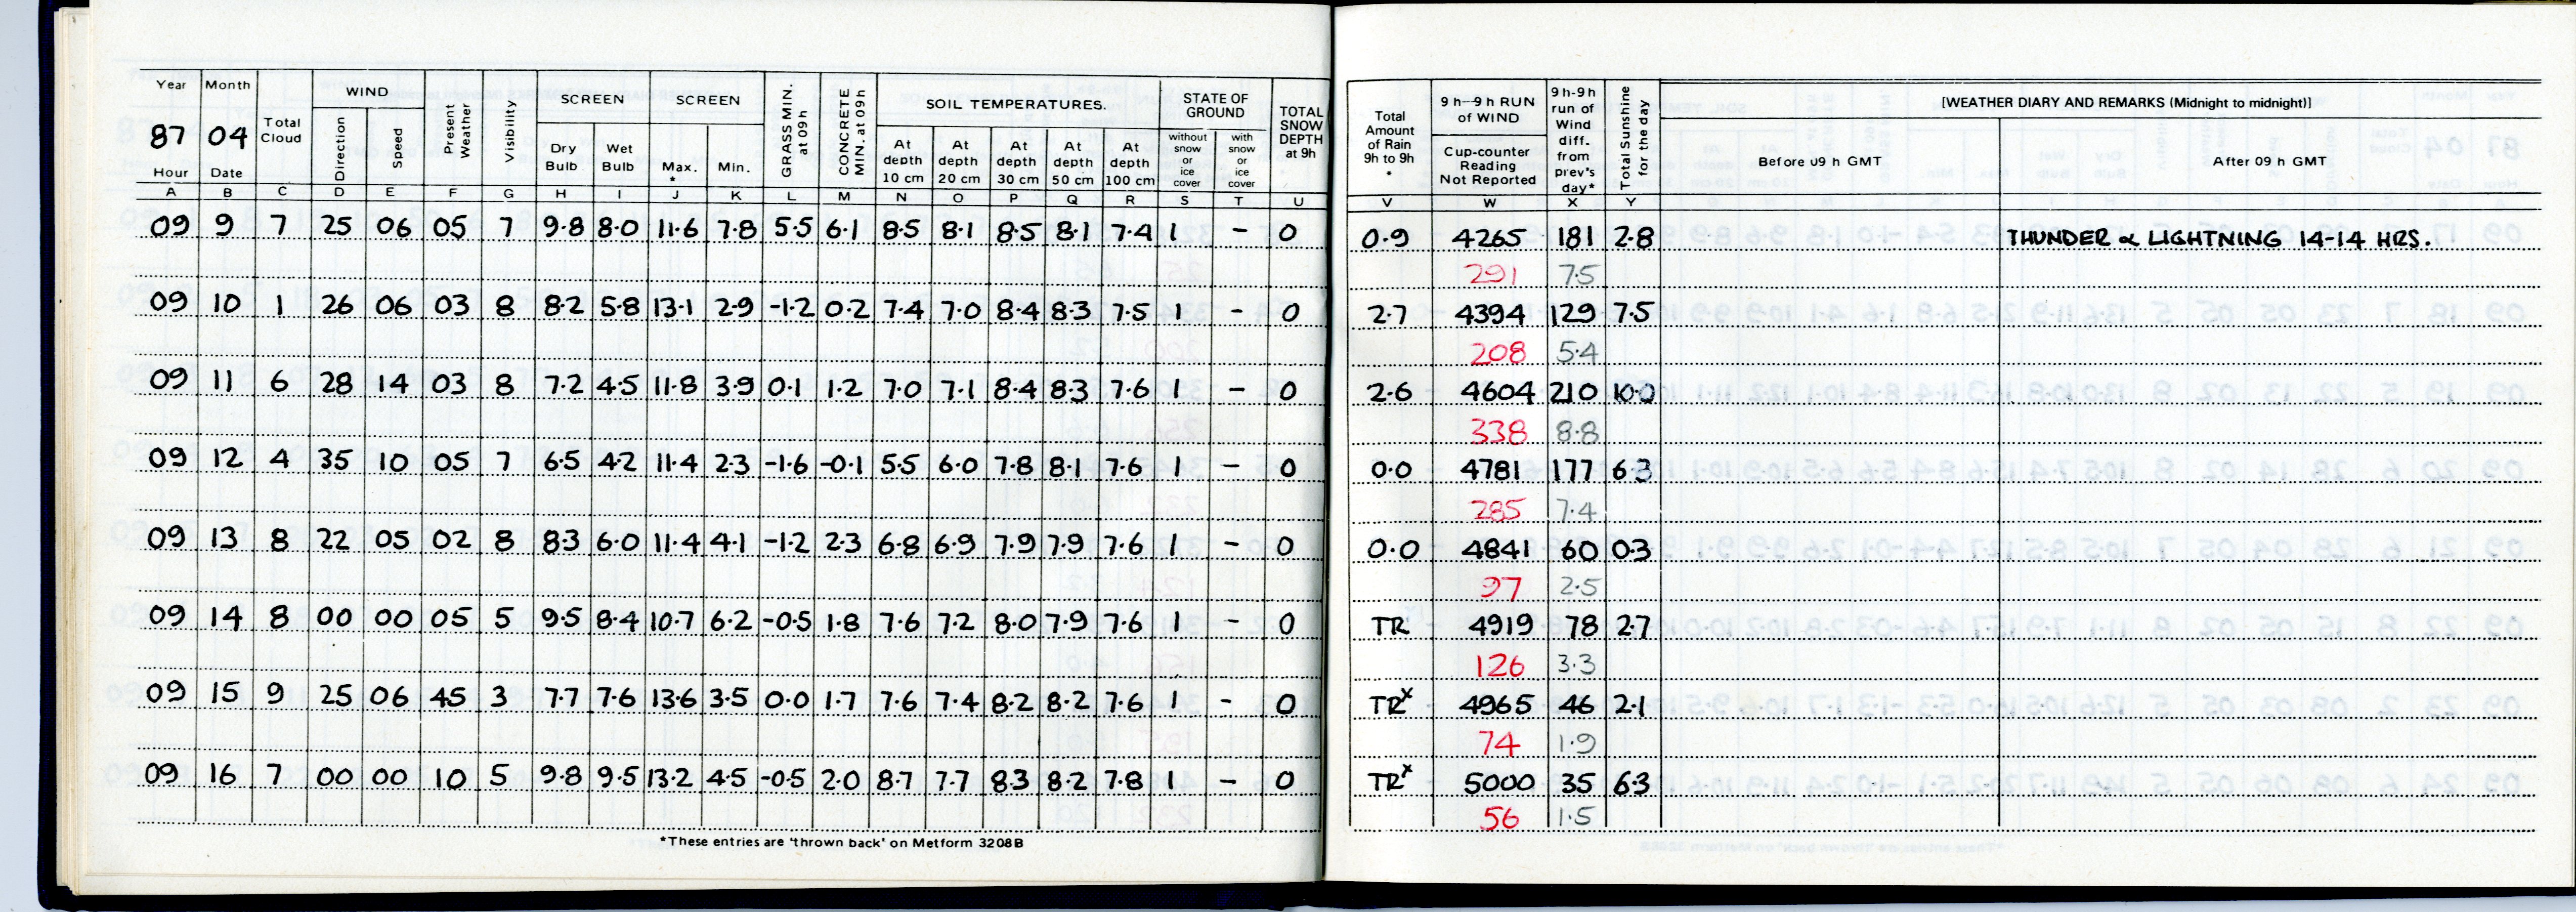 Year Month Total Cloud WIND Present Weather Visibility SCREEN SCREEN GRASS MIN. at 09h CONCRETE MIN. at 09h SOIL TEMPERATURES. STATE OF GROUND TOTAL SNOW DEPTH at 9h
87 04 Direction Speed Dry Bulb Wet Bulb Max. * Min. At depth 10 cm At depth 20 cm At depth 30 cm At depth 50 cm At depth 100 cm without snow or ice cover with snow or ice cover
Hour Date
A B C D E F G H I J K L M N O P Q R S T U
09 9 7 25 06 05 7 9.8 8.0 11.6 7.8 5.5 6.1 8.5 8.1 8.5 8.1 7.4 1 – 0
09 10 1 26 06 03 8 8.2 5.8 13.1 2.9 -1.2 0.2 7.4 7.0 8.4 8.3 7.5 1 – 0
09 11 6 28 14 03 8 7.2 4.5 11.8 3.9 0.1 1.2 7.0 7.1 8.4 8.3 7.6 1 – 0
09 12 4 35 10 05 7 6.5 4.2 11.4 2.3 -1.6 -0.1 5.5 6.0 7.8 8.1 7.6 1 – 0
09 13 8 22 05 02 8 8.3 6.0 11.4 4.1 -1.2 2.3 6.8 6.9 7.9 7.9 7.6 1 – 0
09 14 8 00 00 05 5 9.5 8.4 10.7 6.2 -0.5 1.8 7.6 7.2 8.0 7.9 7.6 1 – 0
09 15 9 25 06 45 3 7.7 7.6 13.6 3.5 0.0 1.7 7.6 7.4 8.2 8.2 7.6 1 – 0
09 16 7 00 00 10 5 9.8 9.5 13.2 4.5 -0.5 2.0 8.7 7.7 8.3 8.2 7.8 1 – 0
*These entries are 'thrown back' on Metform 3208B
Total Amount of Rain 9h to 9h * 9 h–9 h RUN of WIND Cup-counter Reading Not Reported 9 h-9 h run of Wind diff. from prev's day* Total Sunshine for the day [WEATHER DIARY AND REMARKS (Midnight to midnight)]
Before 09 h GMT After 09 h GMT
V W X Y
0.9 4265 181 2.8 THUNDER & LIGHTNING 14-14 HRS.
291 7.5
2.7 4394 129 7.5
208 5.4
2.6 4604 210 10.0
338 8.8
0.0 4781 177 6.3
285 7.4
0.0 4841 60 0.3
97 2.5
TR 4919 78 2.7
126 3.3
TRx 4965 46 2.1
74 1.9
TRx 5000 35 6.3
56 1.5